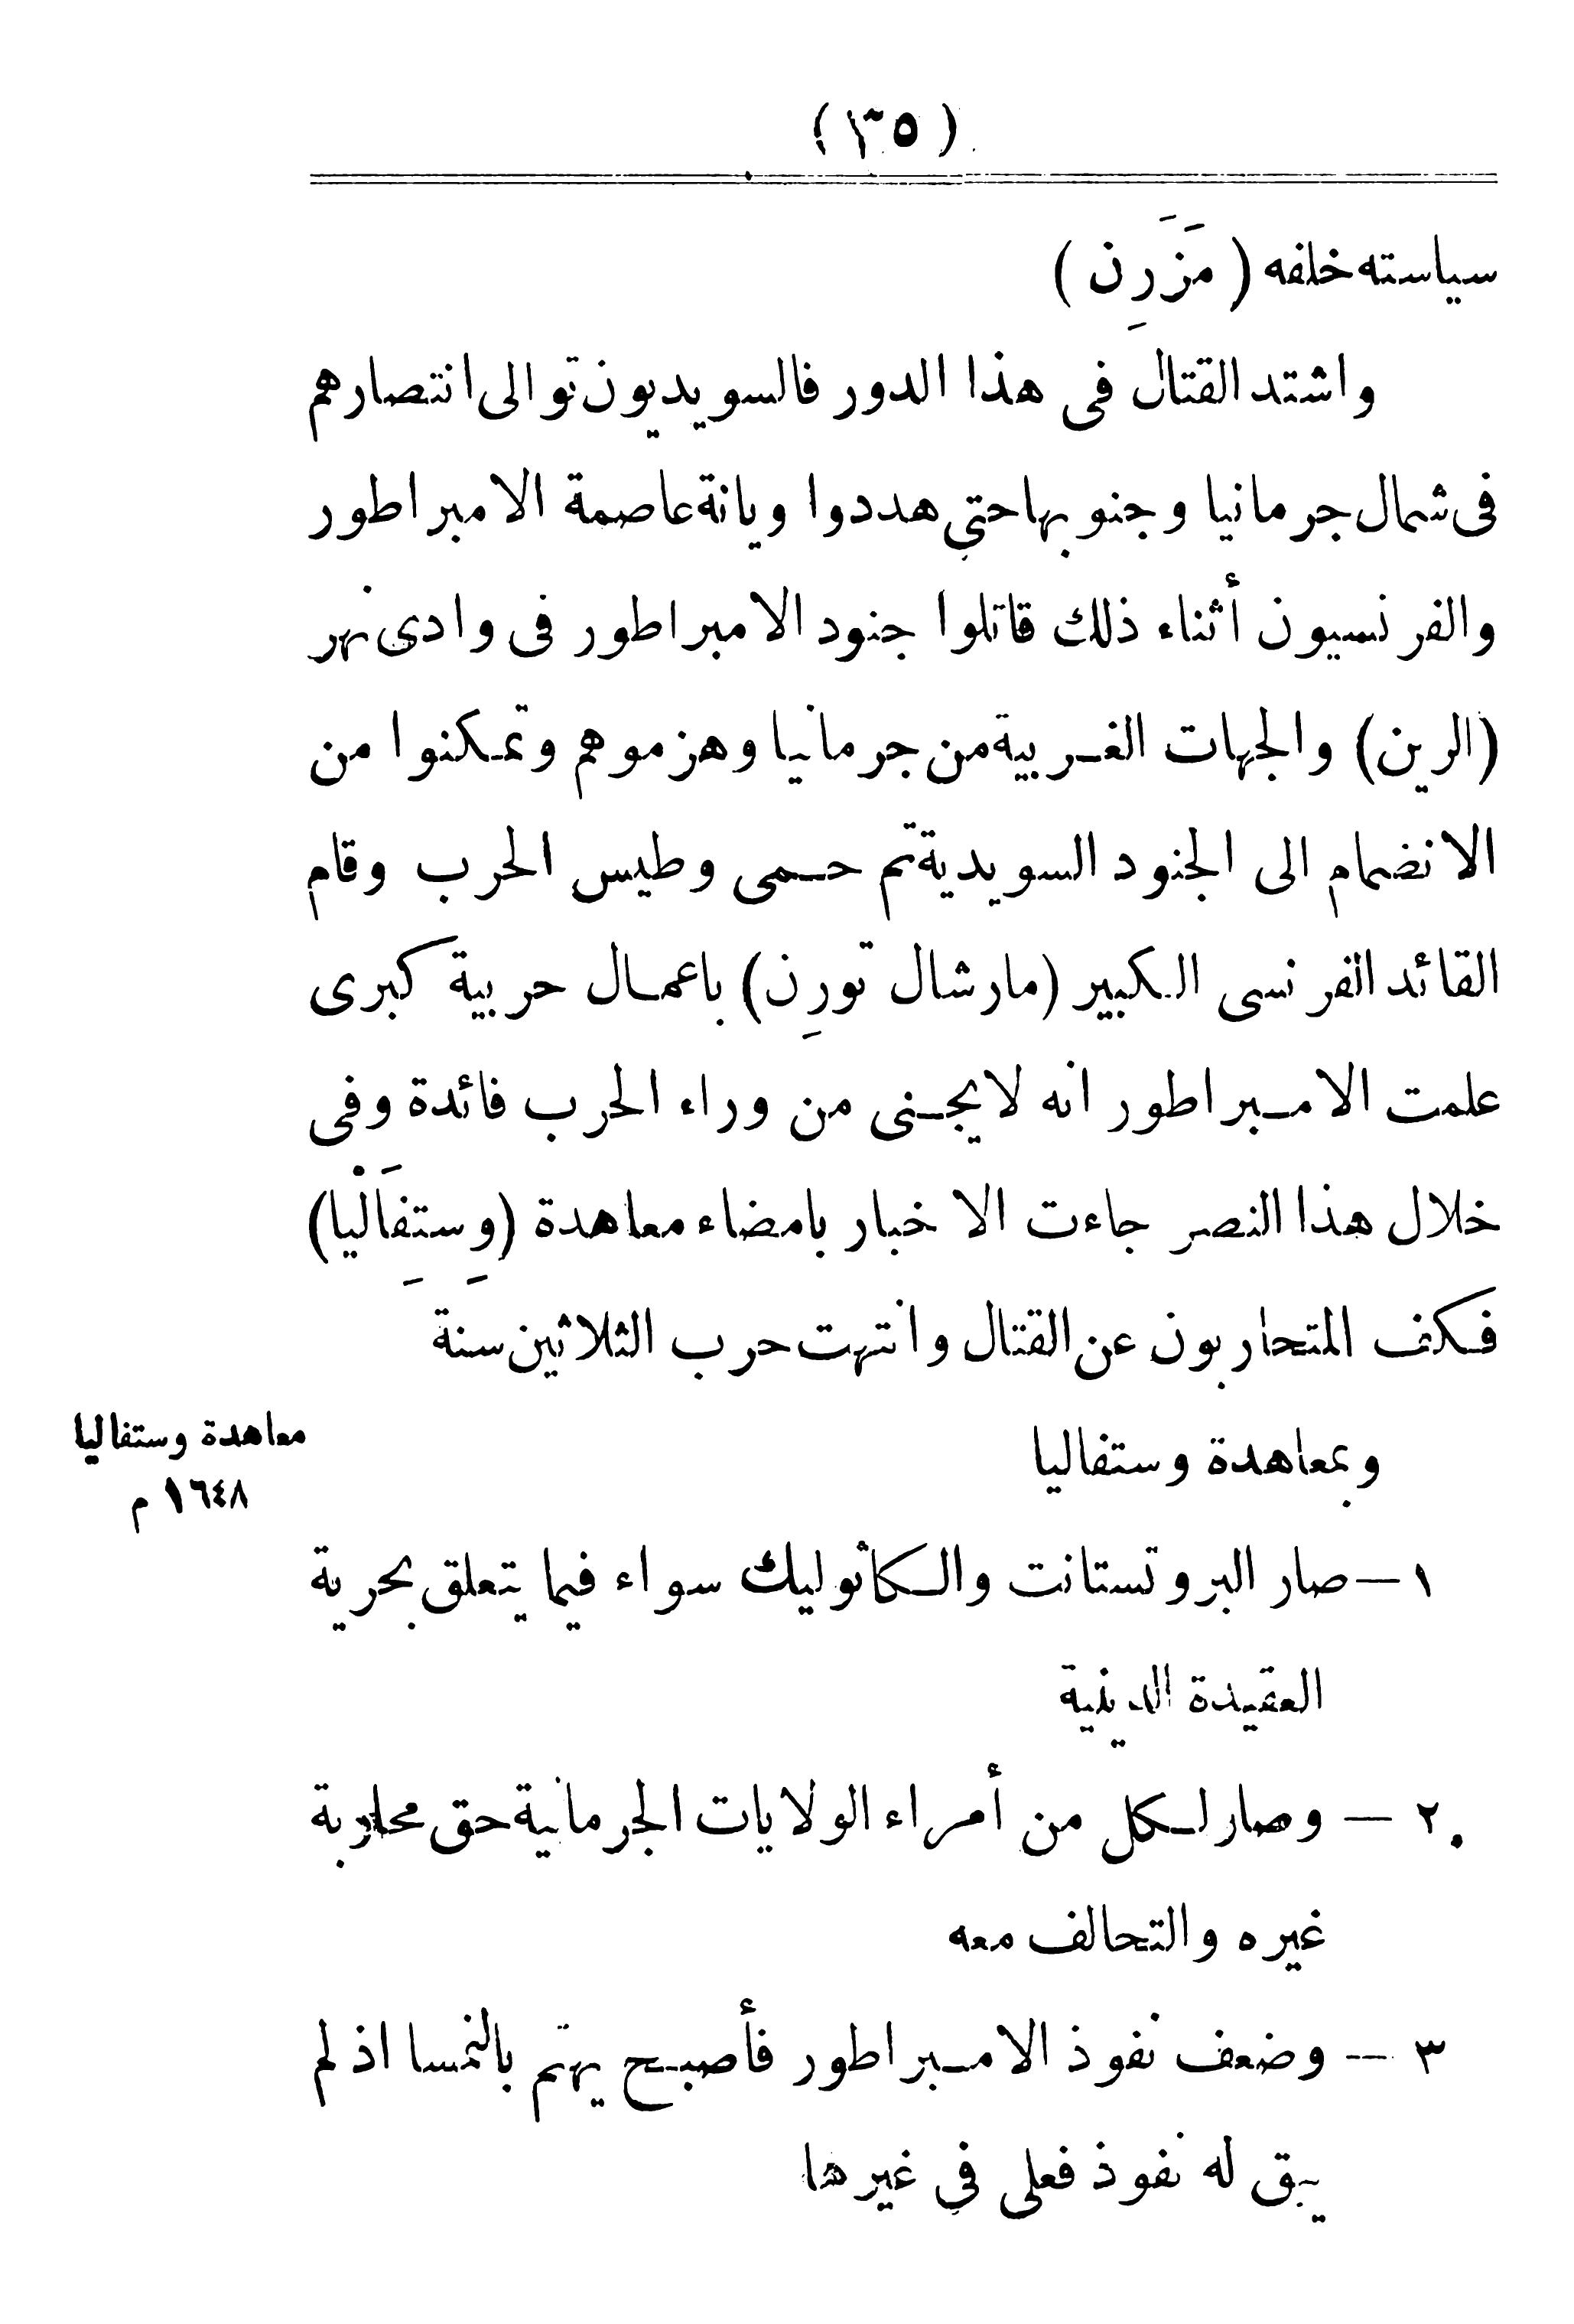 (٣٥)
سياسته خلفه (مَزَرِن)
واشتد القتال فى هذا الدور فالسويديون توالى انتصارهم
فى شمال جرمانيا وجنوبها حتى هددوا ويانة عاصمة الامبراطور
والفرنسيون أثناء ذلك قاتلوا جنود الامبراطور فى وادى نهر
(الرين) والجهات الغربية من جرمانيا وهزموهم وتمكنوا من
الانضمام الى الجنود السويدية تم حمى وطيس الحرب وقام
القائد الفرنسى الكبير (مارشال تورِن) باعمال حربية كبرى
علمت الامبراطور انه لا يجنى من وراء الحرب فائدة وفى
خلال هذا النصر جاءت الاخبار بامضاء معاهدة (وِستِفَالْيا)
فكف المتحاربون عن القتال وانتهت حرب الثلاثين سنة
معاهدة وستفاليا
١٦٤٨ م
وبمعاهدة وستفاليا
١ — صار البروتستانت والكاثوليك سواء فيما يتعلق بحرية
العقيدة الدينية
٢ — وصار لكل من أمراء الولايات الجرمانية حق محاربة
غيره والتحالف معه
٣ — وضعف نفوذ الامبراطور فأصبح يهتم بالنمسا اذ لم
يبق له نفوذ فعلى فى غيرها